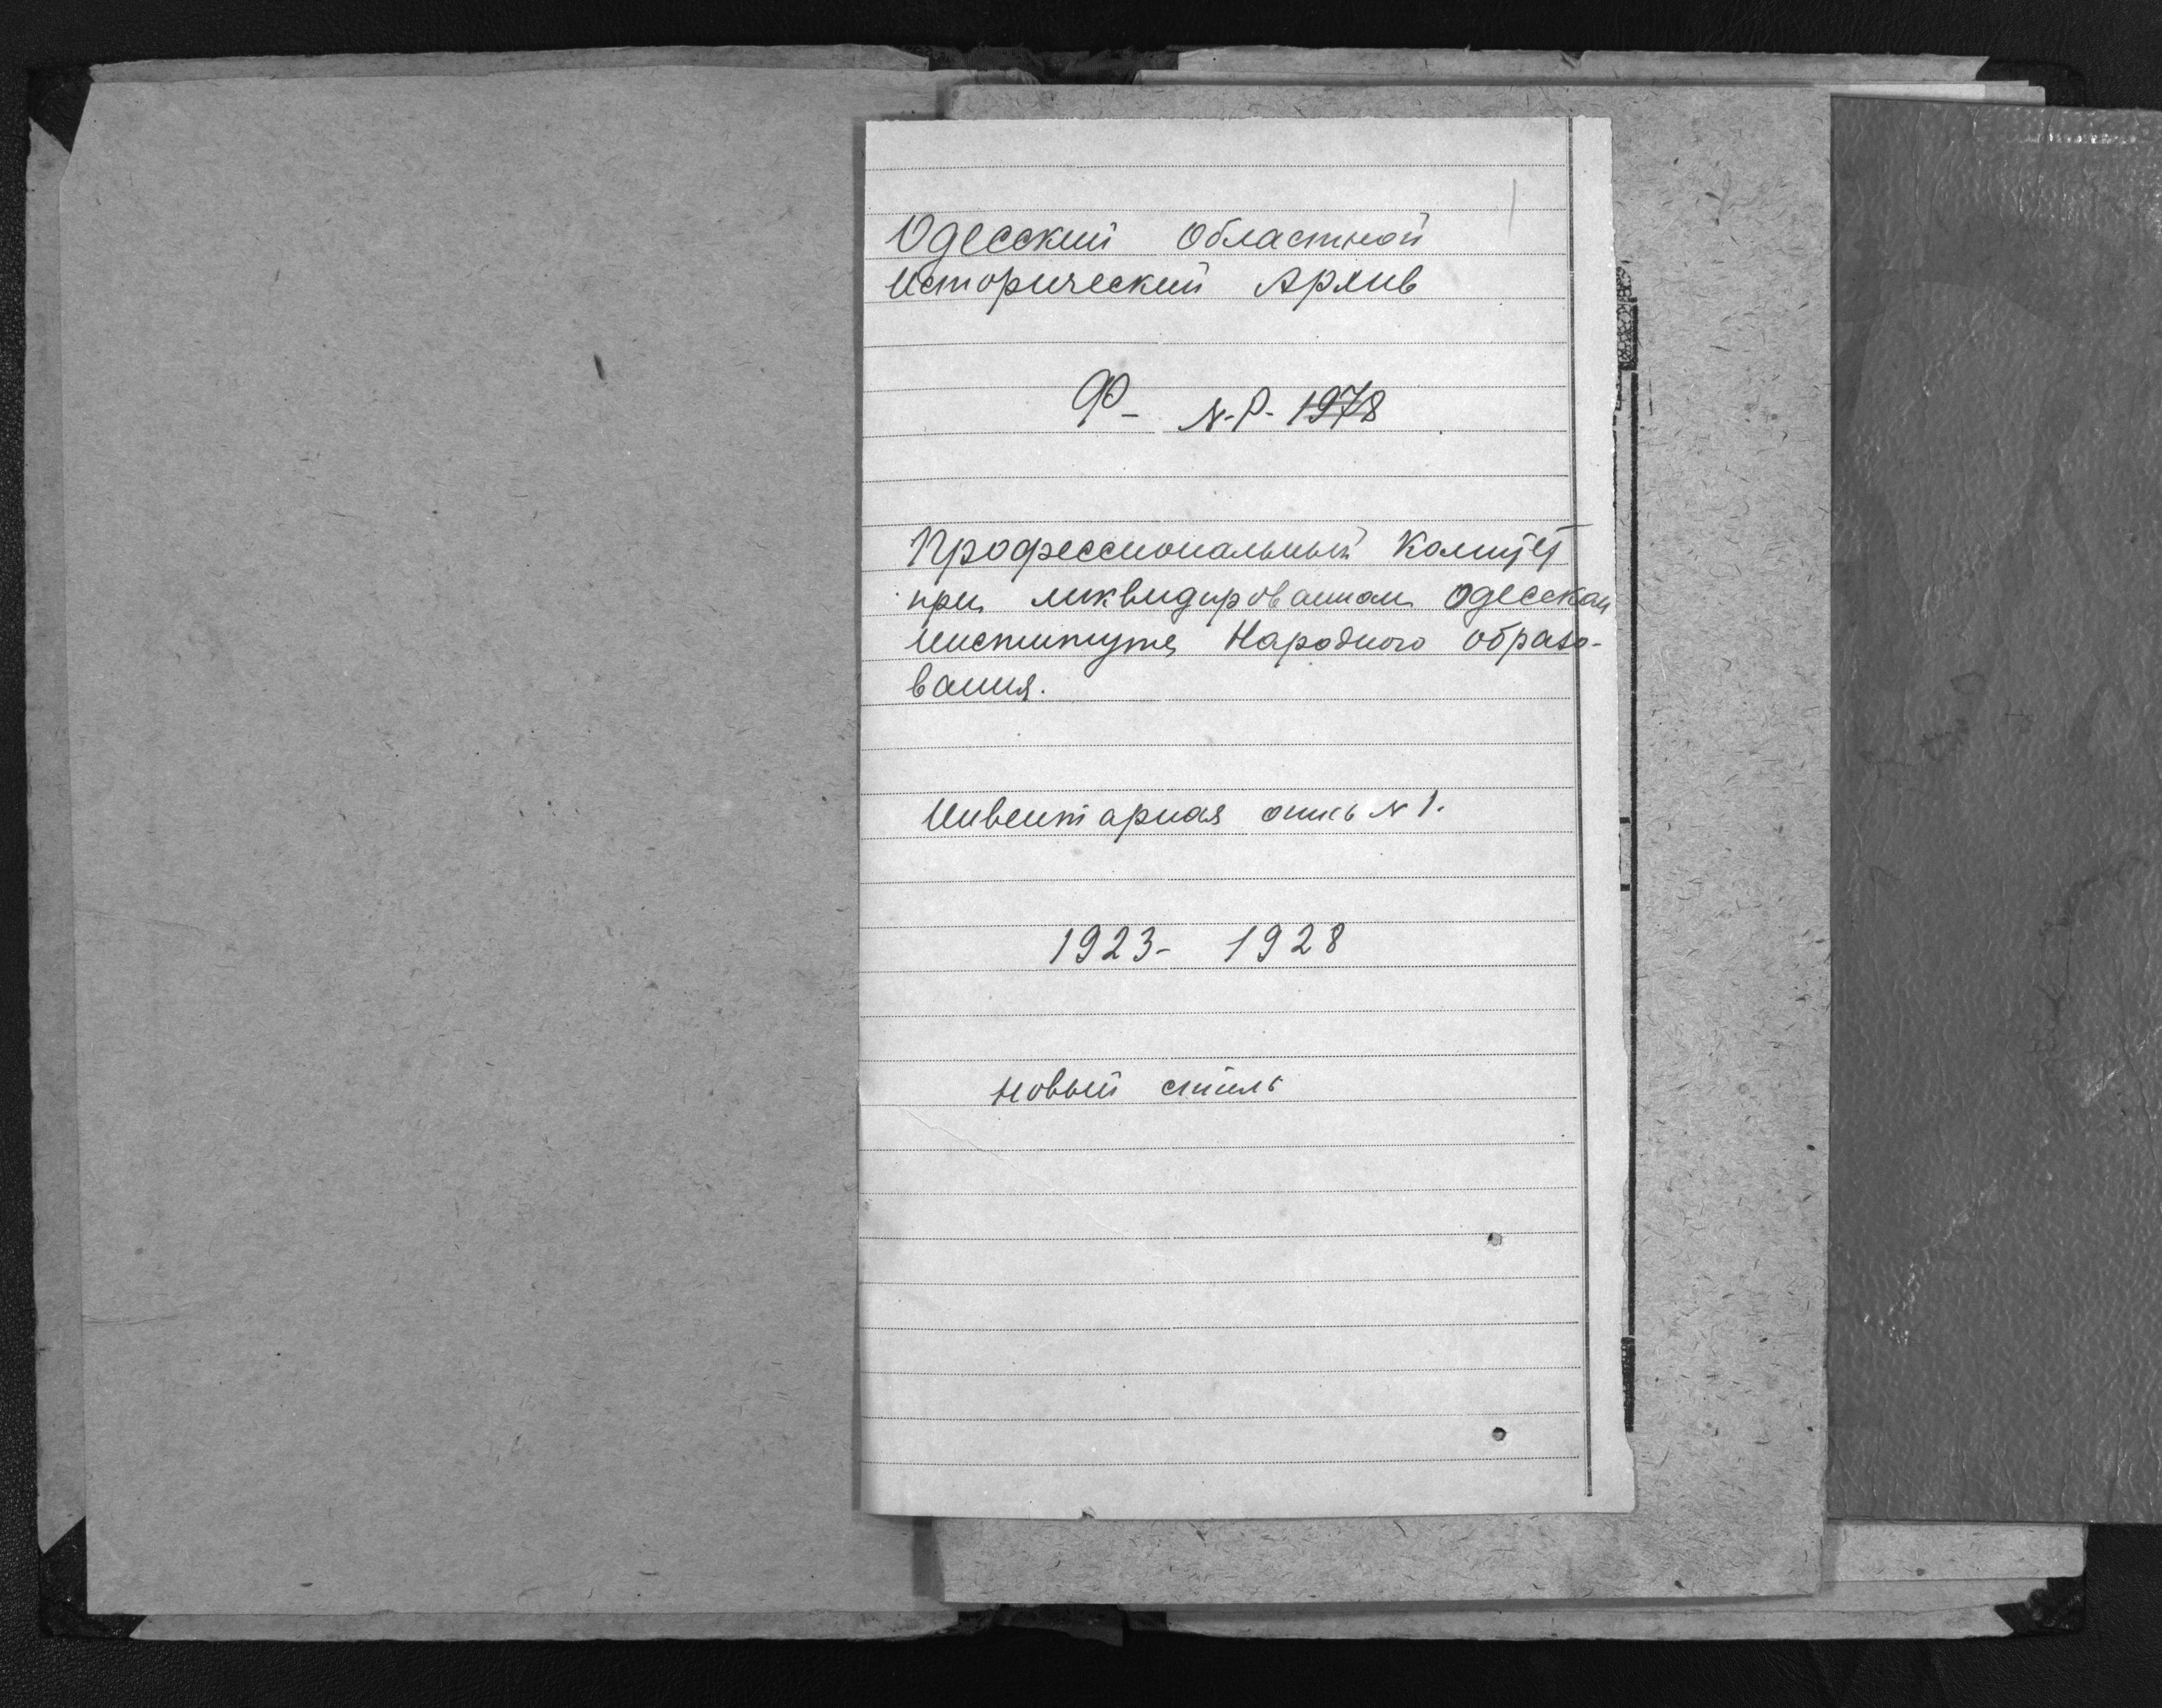 1
Одесский Областной
Исторический Архив
Ф- N-Р- 1978
Профессиональный Комитет
при ликвидированном Одесском
Институте Народного образо-
вания.
Инвентарная опись N 1.
1923- 1928
Новый стиль